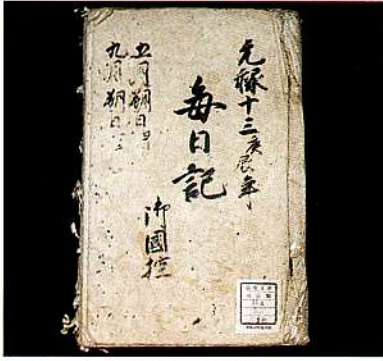 元禄十三庚辰年
毎日記
御國控
五月朔日ヨリ
九月朔日